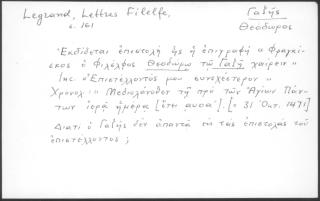 Legrand, Lettres Filelfe,
σ. 161
Γαζῆς
Θεόδωρος
Ἐκδίδεται ἐπιστολὴ ἧς ἡ ἐπιγραφὴ « Φραγκί-
σκος ὁ Φιλέλφος Θεοδώρῳ τῷ Γαζῇ χαίρειν »
Inc. « Ἐπιστέλλοντός μου συνεχέστερον »
Χρονολ. « Μεδιολάνοθεν τῇ πρὸ τῶν Ἁγίων Πάν-
των ἱερᾷ ἡμέρᾳ [ἔτει αυοα΄]. [= 31 Ὀκτ. 1471]
Διατί ὁ Γαζῆς δὲν ἀπαντᾷ εἰς τὰς ἐπιστολὰς τοῦ
ἐπιστέλλοντος ;